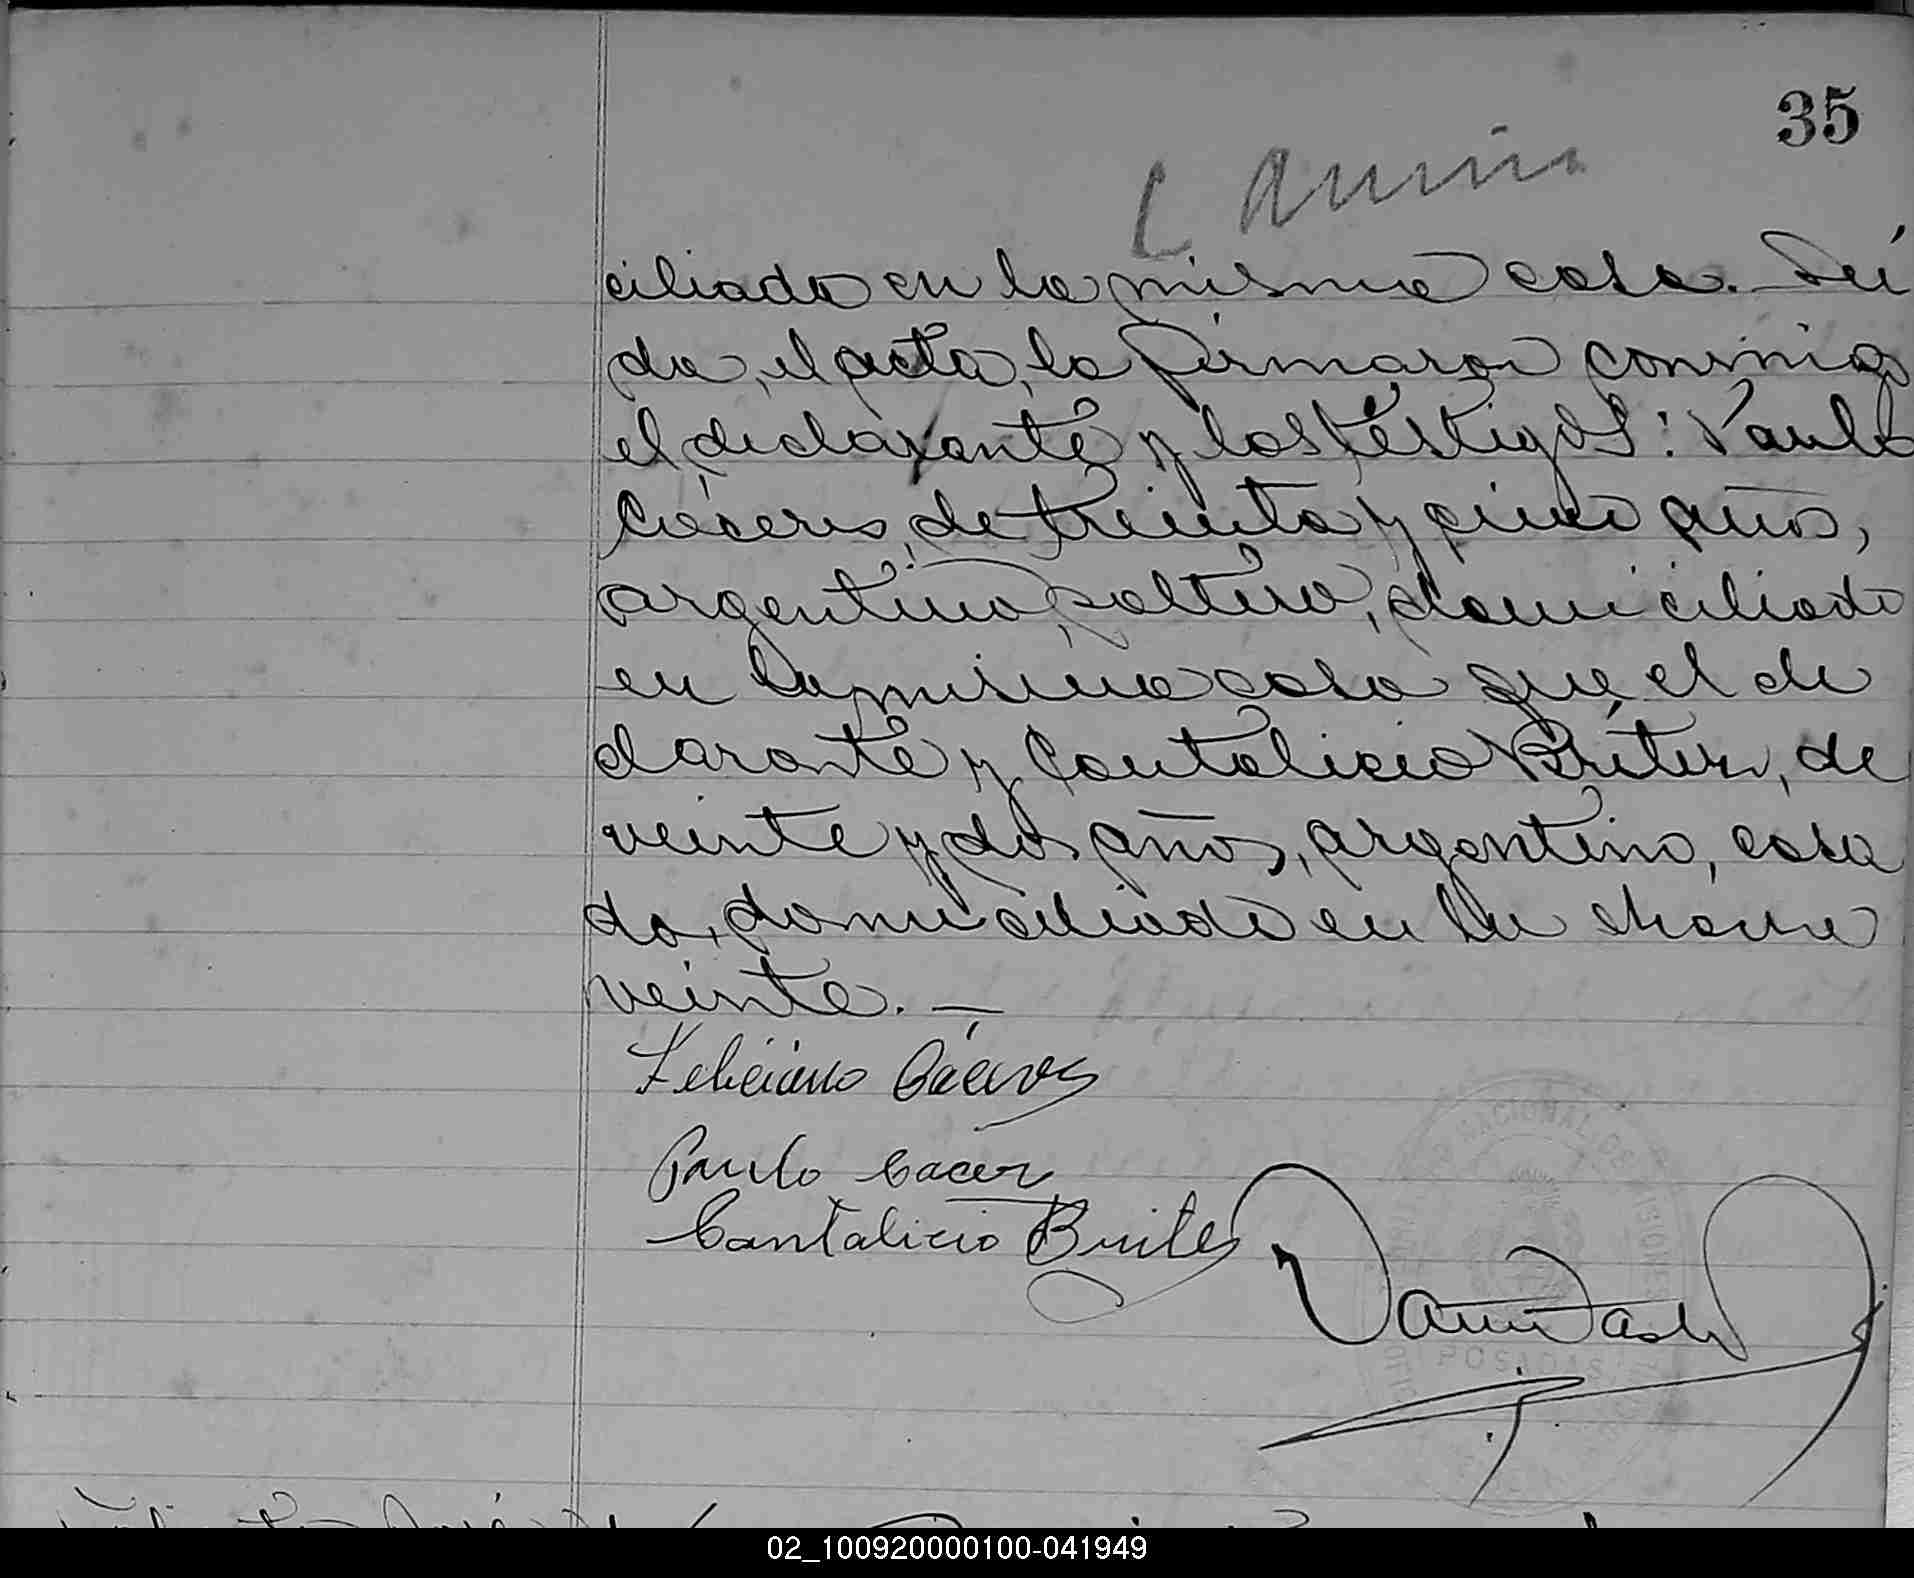 35
ciliado en la misma casa. Leí
da, el acta, la firmaron conmigo
el declarante y los testigos: Paulo
Cáceres, de treinta y cinco años,
argentino, soltero, domiciliado
en la misma casa que el de
clarante y Cantalicio Brites, de
veinte y dos años, argentino, casa
do, domiciliado en la chacra
veinte. —
Feliciano Cáceres
Paulo Cacer
Cantalicio Brites
NACIONAL DE MISIONES
POSADAS
02_100920000100-041949